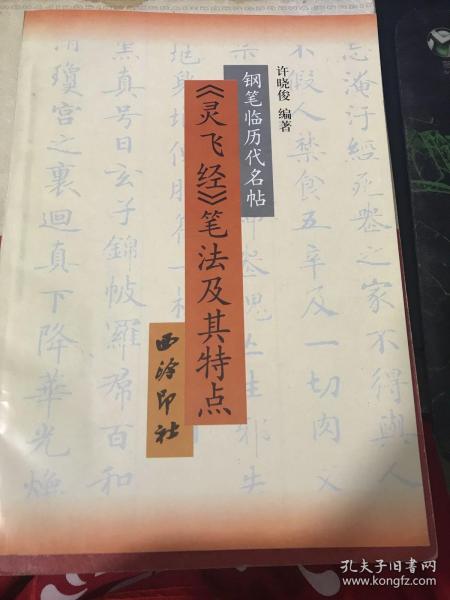 许晓俊 编著
钢笔临历代名帖
《灵飞经》笔法及其特点
西泠印社
忌淹汙经死丧之家不得与人
不假人禁食五辛及一切肉又
黑真号曰玄子錦帔羅帬百和
瓊宫之裏迴真下降華光煥
孔夫子旧书网
www.kongfz.com